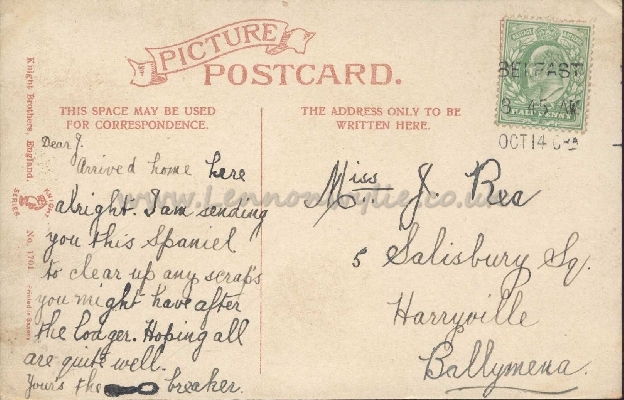 PICTURE
POSTCARD.
THIS SPACE MAY BE USED
FOR CORRESPONDENCE.
THE ADDRESS ONLY TO BE
WRITTEN HERE.
Knight Brothers, England
KNIGHT
SERIES
No. 1701
HALFPENNY
BELFAST
8. 45 AM
OCT 14
www.Lennonwylie.co.uk
Dear J.
Arrived home here
alright. I am sending
you this Spaniel
to clear up any scraps
you might have after
the lodger. Hoping all
are quite well.
Yours the breaker.
Miss J. Rea
5 Salisbury Sq.
Harryville
Ballymena.